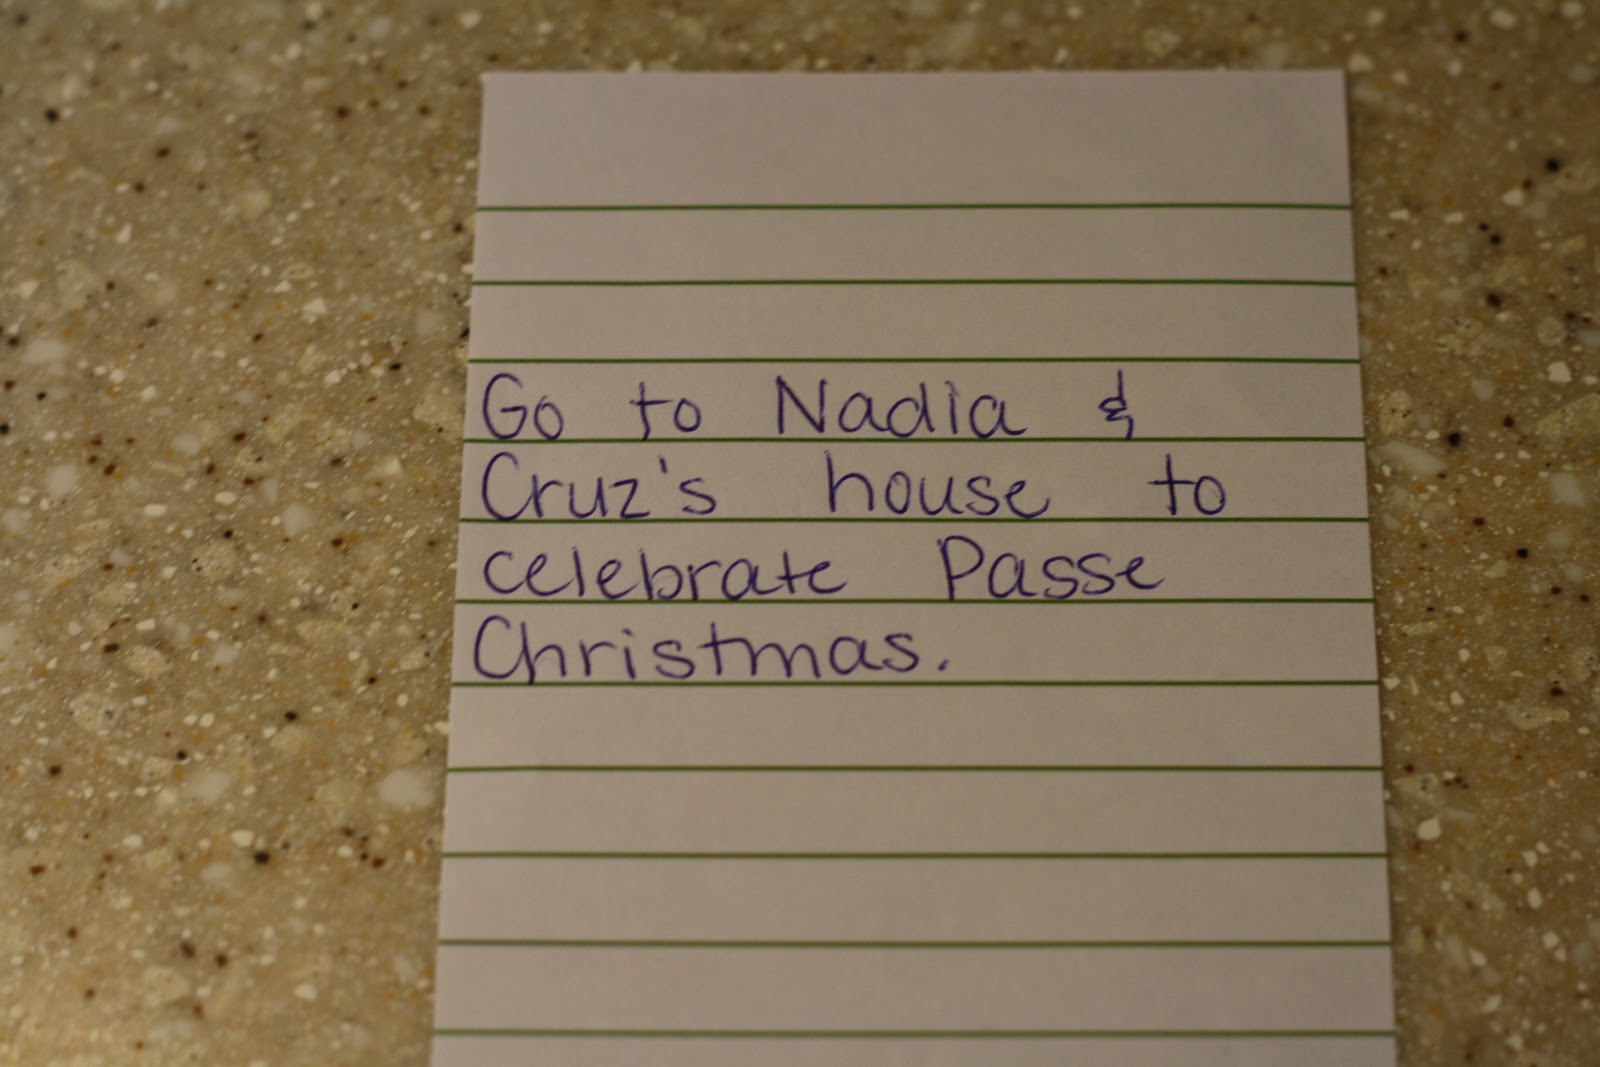 Go to Nadia &
Cruz's house to
celebrate Passe
Christmas.